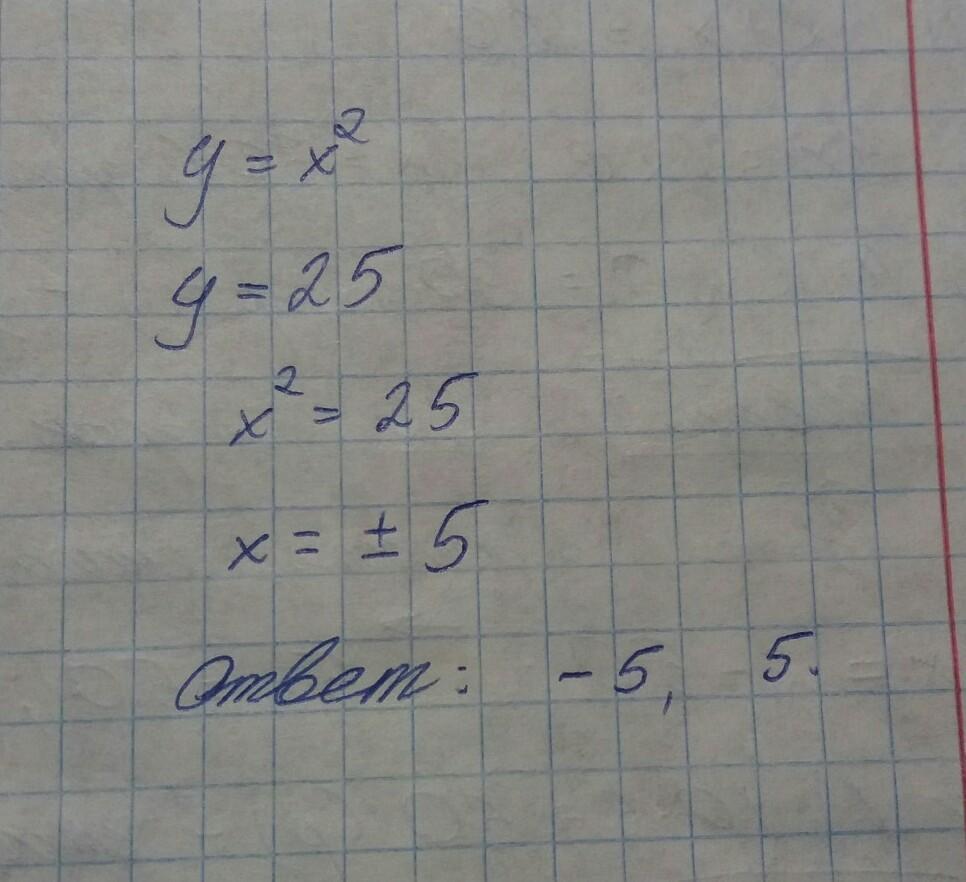 y = x²
y = 25
x² = 25
x = ± 5
Ответ: - 5, 5.